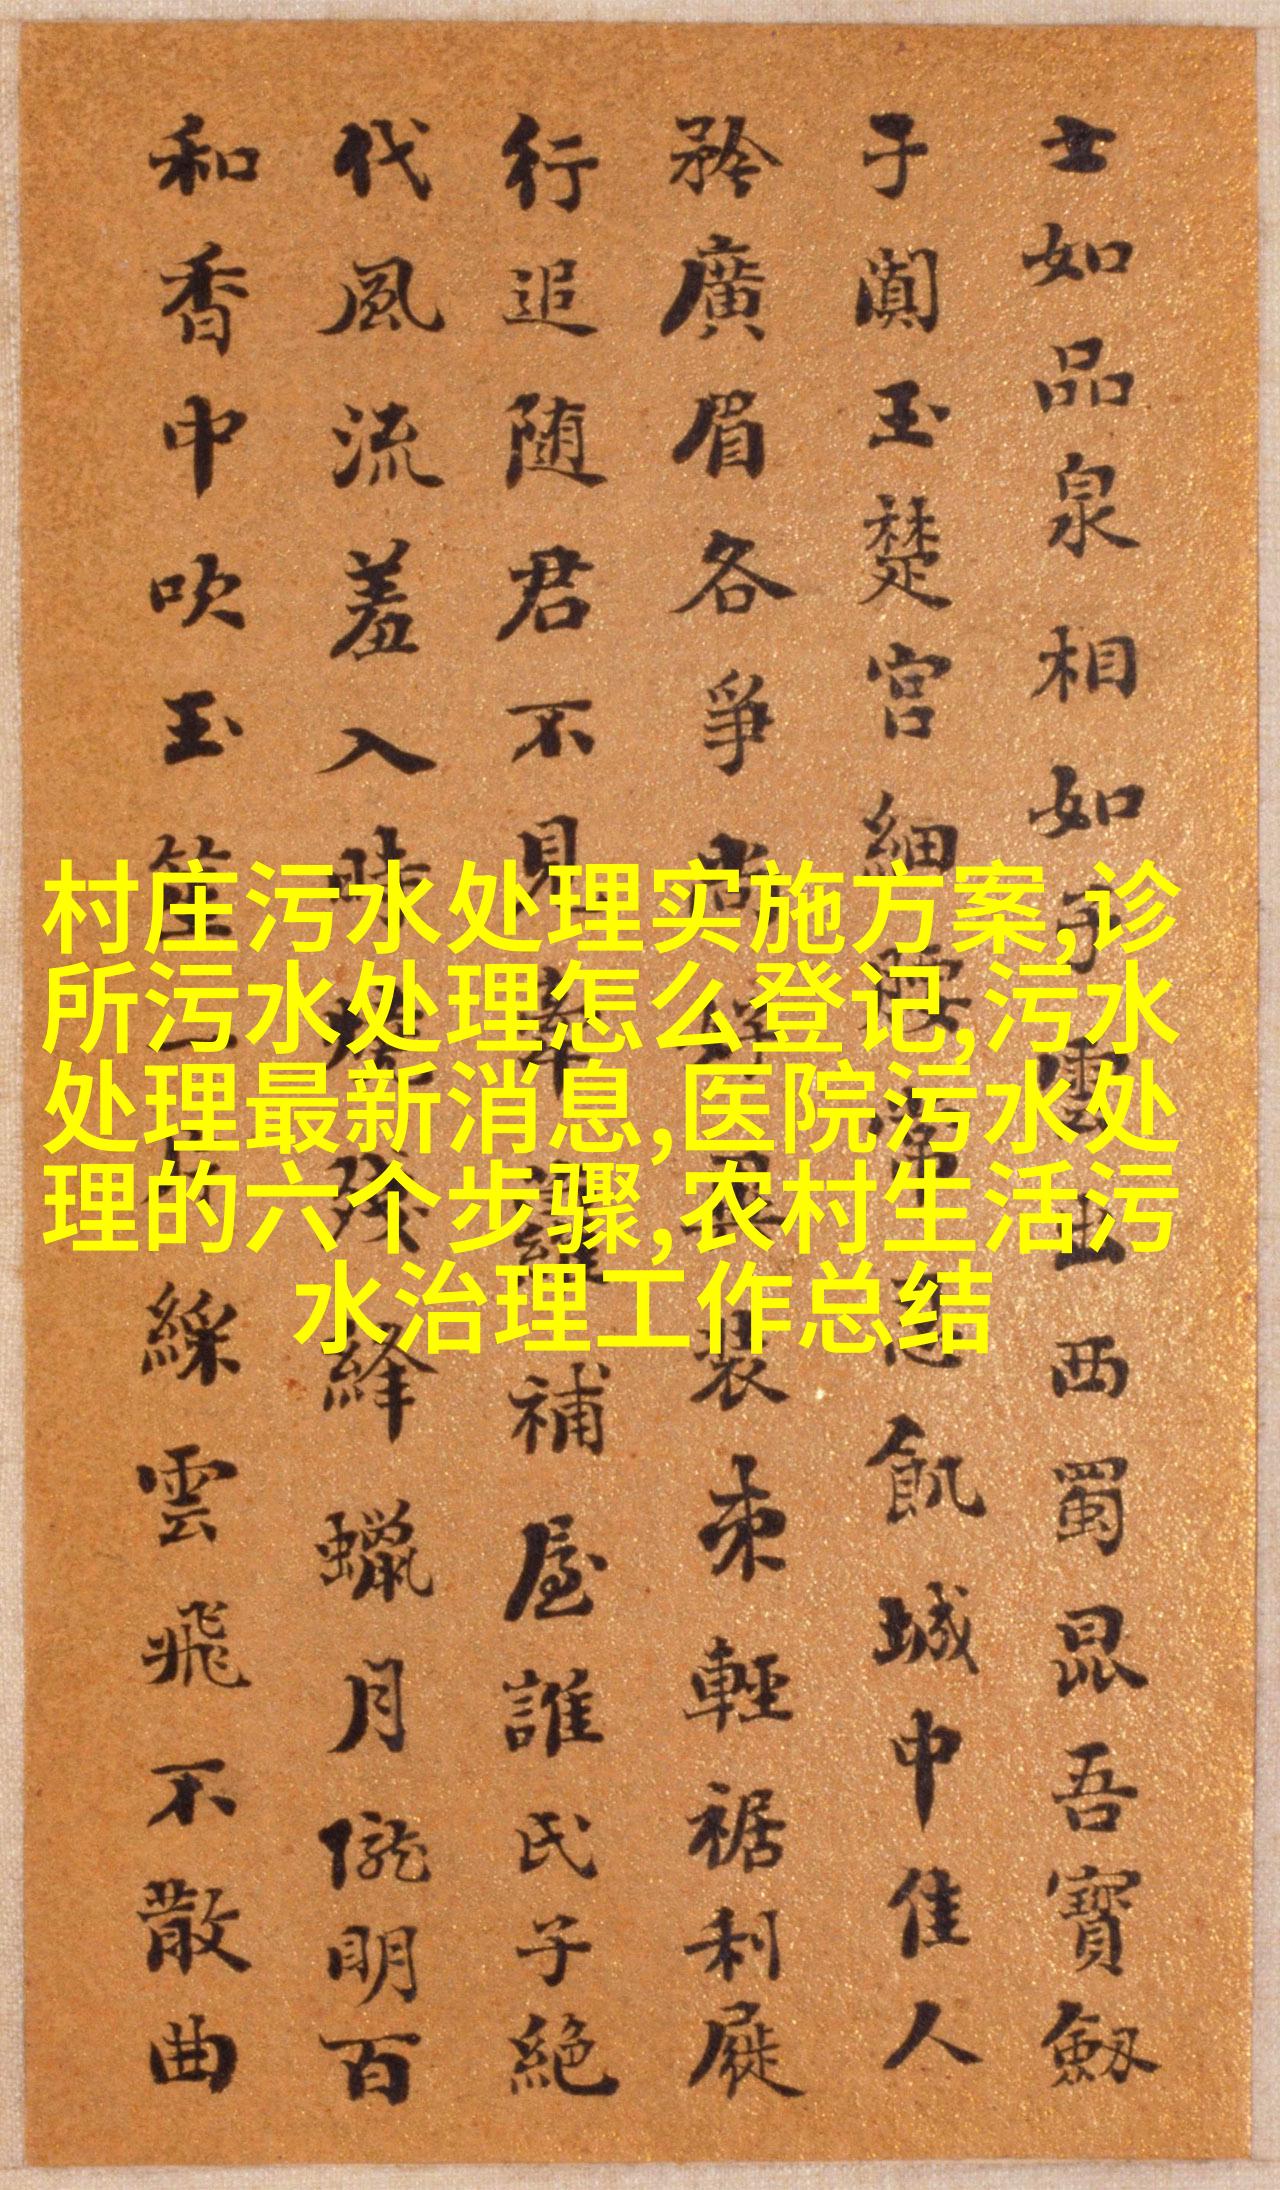 士如品泉相如子雲出西蜀昆吾寶劔
于闐玉楚宮細腰常忍飢城中佳人
矜廣眉各爭尚裝束輕裾利屣
行追随君不見牽蘿補屋誰氏子絕
代風流羞入時燒殘絳蠟月隴明百
和香中吹玉笙綵雲飛不散曲
村庄污水处理实施方案,诊
所污水处理怎么登记,污水
处理最新消息,医院污水处
理的六个步骤,农村生活污
水治理工作总结